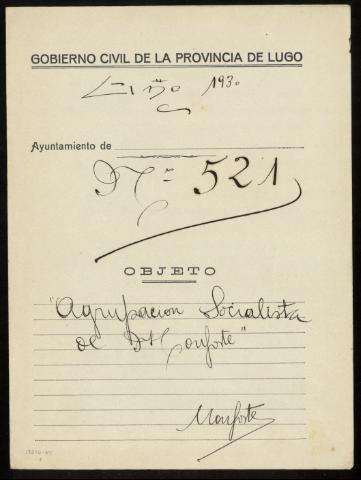 GOBIERNO CIVIL DE LA PROVINCIA DE LUGO
Año 1930
Ayuntamiento de
Nº 521
OBJETO
"Agrupacion Socialista
de Monforte"
Monforte